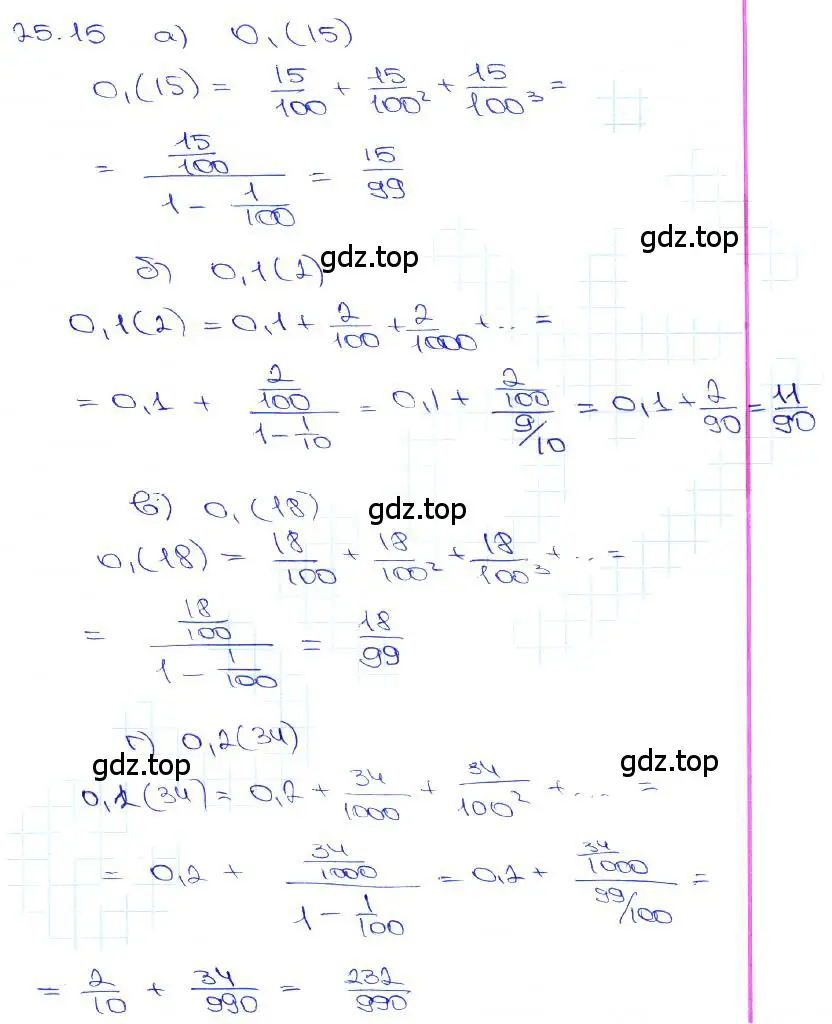 25.15 а) 0,(15)
0,(15) = 15/100 + 15/100² + 15/100³ =
= (15/100)/(1 - 1/100) = 15/99
gdz.top
б) 0,1(2) gdz.top
0,1(2) = 0,1 + 2/100 + 2/1000 + .. =
= 0,1 + (2/100)/(1 - 1/10) = 0,1 + (2/100)/(9/10) = 0,1 + 2/90 = 11/90
в) 0,(18) gdz.top
0,(18) = 18/100 + 18/100² + 18/100³ + ... =
= (18/100)/(1 - 1/100) = 18/99
г) 0,2(34)
gdz.top gdz.top
0,2(34) = 0,2 + 34/1000 + 34/100² + .... =
= 0,2 + (34/1000)/(1 - 1/100) = 0,2 + (34/1000)/(99/100) =
= 2/10 + 34/990 = 232/990